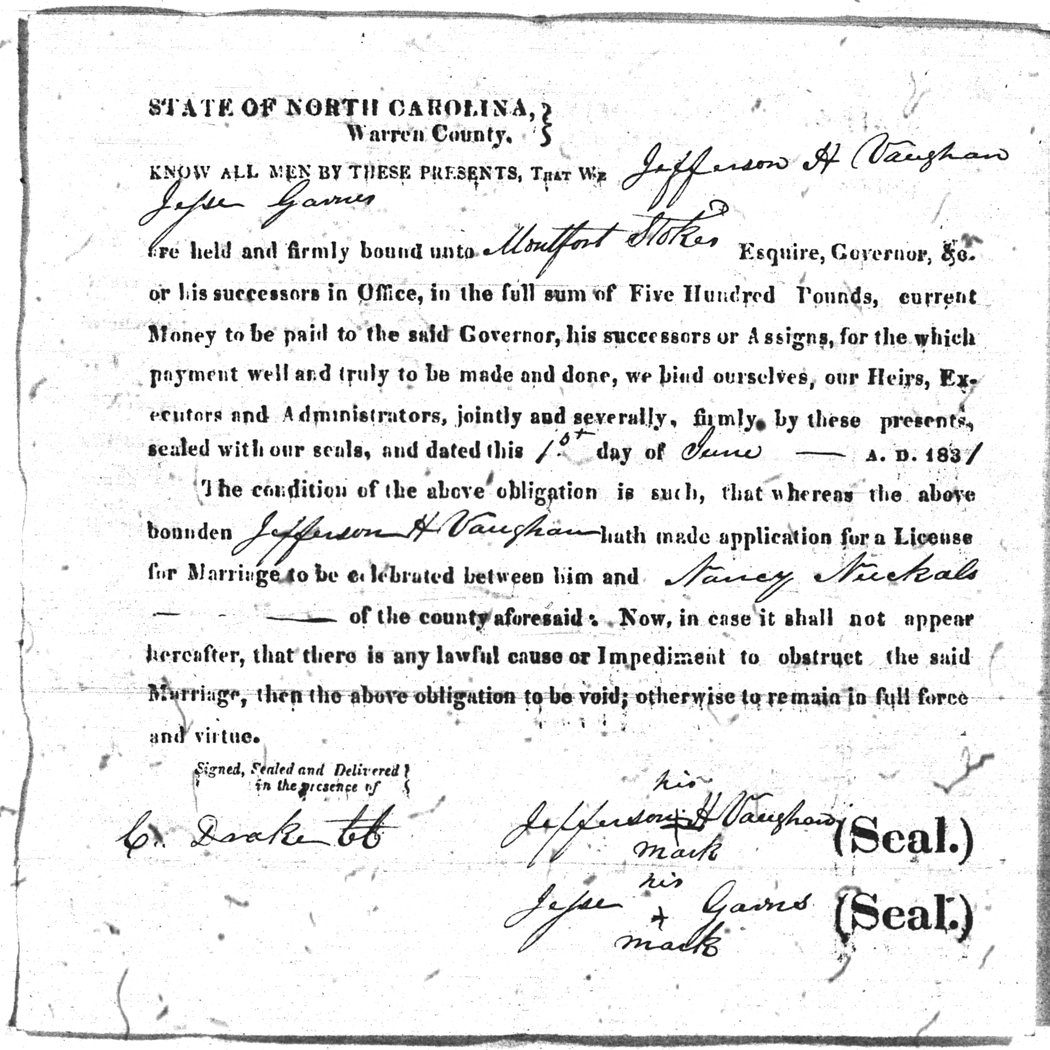 STATE OF NORTH CAROLINA,
Warren County.
KNOW ALL MEN BY THESE PRESENTS, THAT WE Jefferson H Vaughan
Jesse Garnes
are held and firmly bound unto Montfort Stokes Esquire, Governor, &c.
or his successors in Office, in the full sum of Five Hundred Pounds, current
Money to be paid to the said Governor, his successors or Assigns, for the which
payment well and truly to be made and done, we bind ourselves, our Heirs, Ex-
ecutors and Administrators, jointly and severally, firmly by these presents,
sealed with our seals, and dated this 1st day of June — A. D. 1831
The condition of the above obligation is such, that whereas the above
bounden Jefferson H Vaughan hath made application for a License
for Marriage to be celebrated between him and Nancy Nuckals
— - — of the county aforesaid: Now, in case it shall not appear
hereafter, that there is any lawful cause or Impediment to obstruct the said
Marriage, then the above obligation to be void; otherwise to remain in full force
and virtue.
Signed, Sealed and Delivered
in the presence of
his
C. Drake Jefferson H Vaughan (Seal.)
mark
his
Jesse + Garns (Seal.)
mark